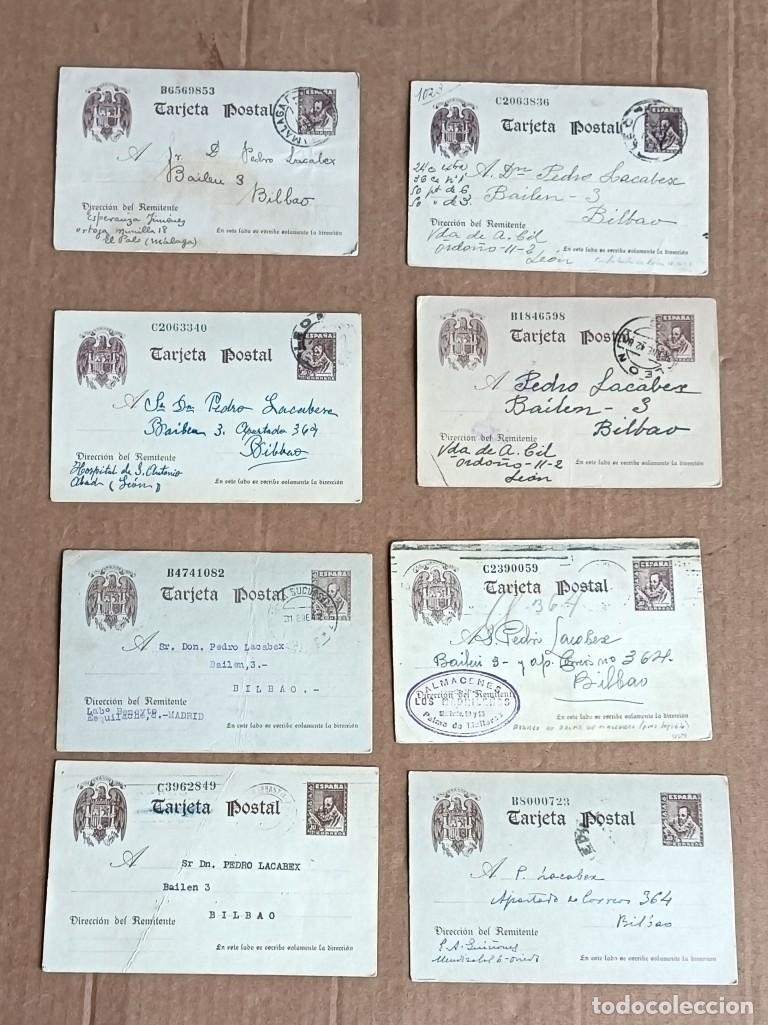 B6569853
ESPAÑA
MALAGA
Tarjeta Postal
A Sr. D Pedro Lacabex
Bailen 3
Bilbao
Dirección del Remitente
Esperanza Jiménez
18
El Palo (Málaga)
En este lado se escribe solamente la dirección
1023
C2063836
Tarjeta Postal
A. Dn Pedro Lacabex
Bailen - 3
Bilbao
50 pt de 6
50 " de 3.
Dirección del Remitente
Vda de A. Gil
Ordoño-11-2
León
En este lado se escribe solamente la dirección
C2063340
LEON
ESPAÑA
Tarjeta Postal
A Sr. Dn. Pedro Lacabex
Bailen 3. Apartado 364
Bilbao
Dirección del Remitente
Hospital de S. Antonio
Abad (León)
En este lado se escribe solamente la dirección
B1846598
ESPAÑA
LEON
Tarjeta Postal
A Pedro Lacabex
Bailen - 3
Bilbao
Dirección del Remitente
Vda de A. Gil
Ordoño-11-2
León
En este lado se escribe solamente la dirección
B4741082
ESPAÑA
SUCURSAL
31 ENE
Tarjeta Postal
A Sr. Don. Pedro Lacabex
Bailen,3.-
BILBAO.-
Dirección del Remitente
Esquilache,8.-MADRID
En este lado se escribe solamente la dirección
C2390059
ESPAÑA
Tarjeta Postal
364
A S. Pedro Lacabex
Bailen 3- y ap. Correos no 364.
Bilbao
Dirección del Remitente
ALMACENES
LOS MADRILEÑOS
Palma de Mallorca
C3962849
ESPAÑA
CORREOS
Tarjeta Postal
A Sr Dn. PEDRO LACABEX
Bailen 3
BILBAO
Dirección del Remitente
En este lado se escribe solamente la dirección
B8000723
ESPAÑA
CORREOS
Tarjeta Postal
A P. Lacabex
Apartado de Correos 364
Bilbao
Dirección del Remitente
S.A. Quiñones
Mendizabal 6-Oviedo
En este lado se escribe solamente la dirección
todocoleccion